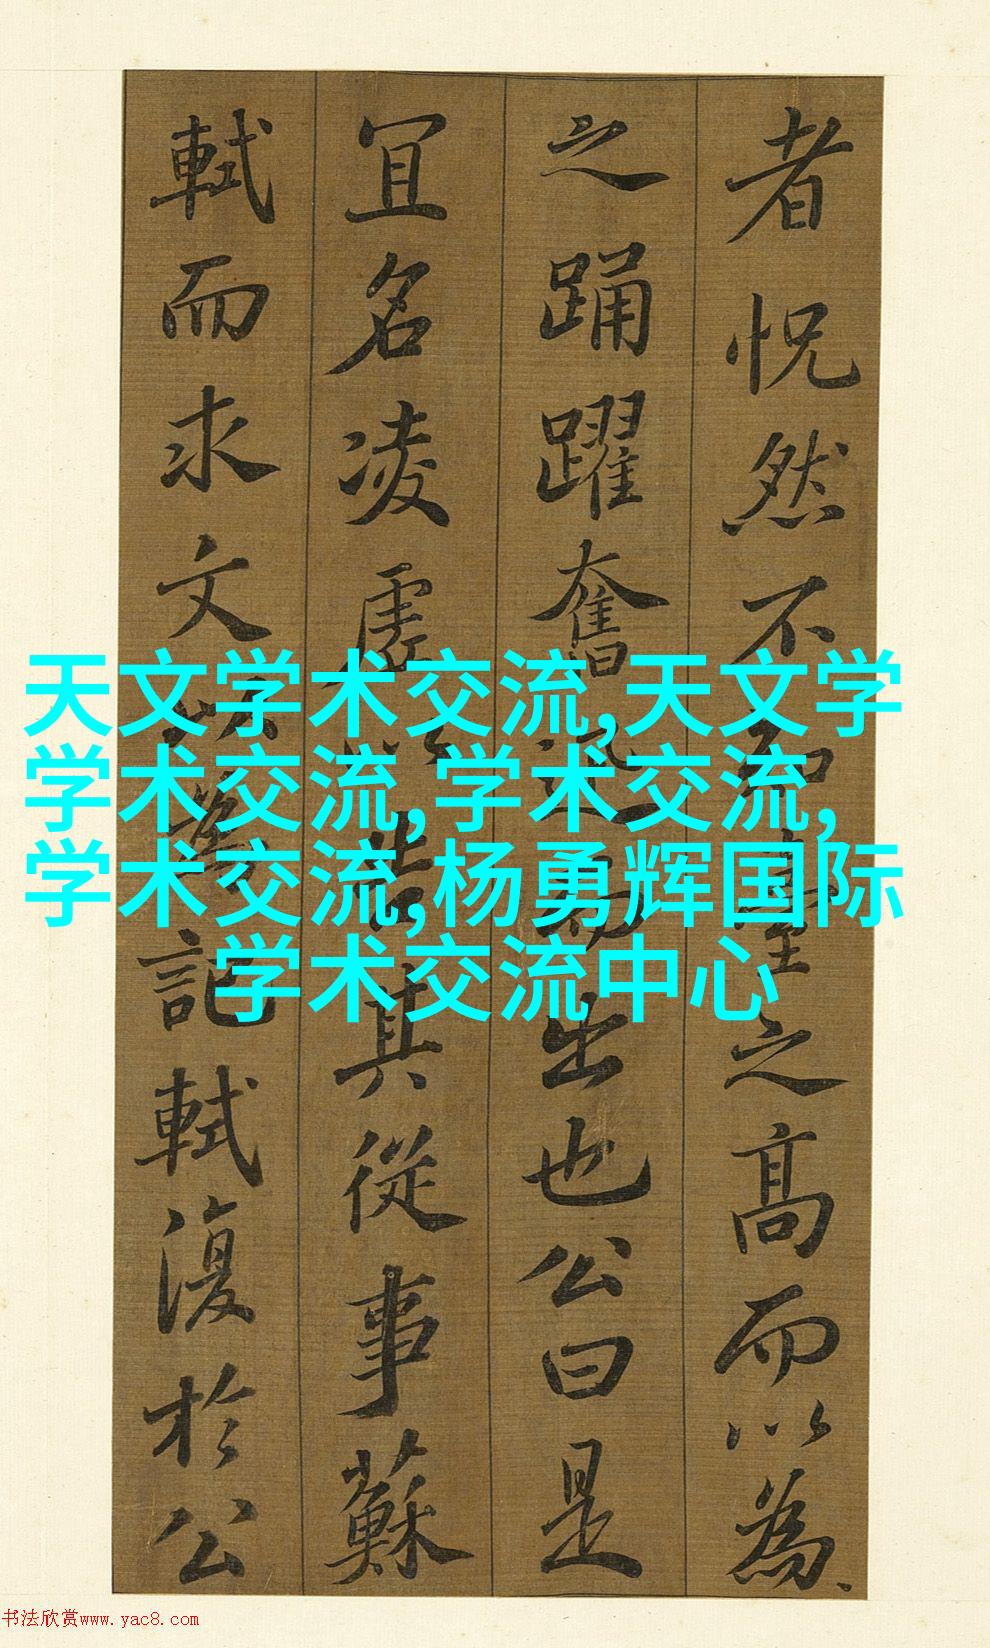 者怳然不知臺之高而以為
之踊躍奮迅而出也公曰是
宜名凌虛以告其從事蘇
軾而求文以為記軾復於公
天文学术交流,天文学
学术交流,学术交流,
学术交流,杨勇辉国际
学术交流中心
书法欣赏www.yac8.com